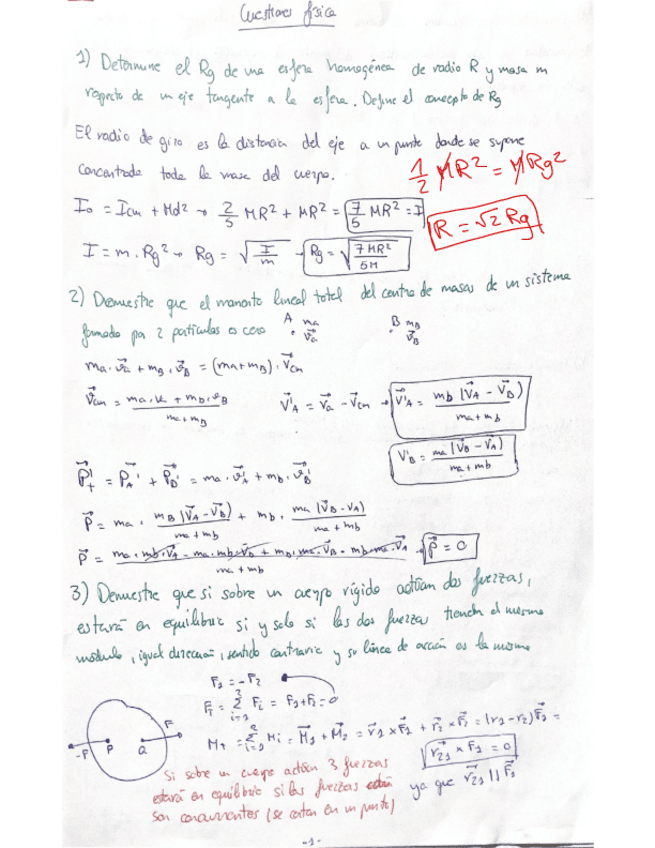 Cuestiones física
1) Determine el Rg de una esfera homogénea de radio R y masa m
respecto de un eje tangente a la esfera. Define el concepto de Rg
El radio de giro es la distancia del eje a un punto donde se supone
concentrada toda la masa del cuerpo.
1/2 MR² = MRg²
I₀ = Icm + Md² → 2/5 MR² + MR² = 7/5 MR² = I
R = √2 Rg
I = m · Rg² → Rg = √(I/m) → Rg = √(7MR²/5M)
2) Demuestre que el momento lineal total del centro de masas de un sistema
formado por 2 partículas es cero
A ma v⃗a
B mB v⃗B
ma · v⃗a + mB · v⃗B = (ma + mB) · V⃗cm
V⃗cm = (ma · va + mb · vB)/(ma + mB)
V⃗'A = V⃗a − V⃗cm → V⃗'A = mb (V⃗A − V⃗B)/(ma + mb)
V'B = ma (V⃗B − V⃗A)/(ma + mb)
P⃗'t = P⃗A' + P⃗B' = ma · v⃗A' + mb · v⃗B'
P⃗ = ma · mB (V⃗A − V⃗B)/(ma + mb) + mb · ma (V⃗B − VA)/(ma + mb)
P⃗ = (ma · mb · V⃗A − ma · mb · V⃗B + mb · ma · V⃗B − mb · ma · V⃗A)/(ma + mb) → P⃗ = 0
3) Demuestre que si sobre un cuerpo rígido actúan dos fuerzas,
estará en equilibrio si y solo si las dos fuerzas tienen el mismo
módulo, igual dirección, sentido contrario y su línea de acción es la misma
F₁ = −F₂
Ft = Σ Fi = F₁ + F₂ = 0
Mt = Σ Mi = M⃗₁ + M⃗₂ = r⃗₁ × F⃗₁ + r⃗₂ × F⃗₂ = (r₁ − r₂) F⃗₁ =
r⃗₂₁ × F₁ = 0
ya que r⃗₂₁ || F⃗₁
−F P Q F
Si sobre un cuerpo actúan 3 fuerzas
estará en equilibrio si las fuerzas
son concurrentes (se cortan en un punto)
-1-